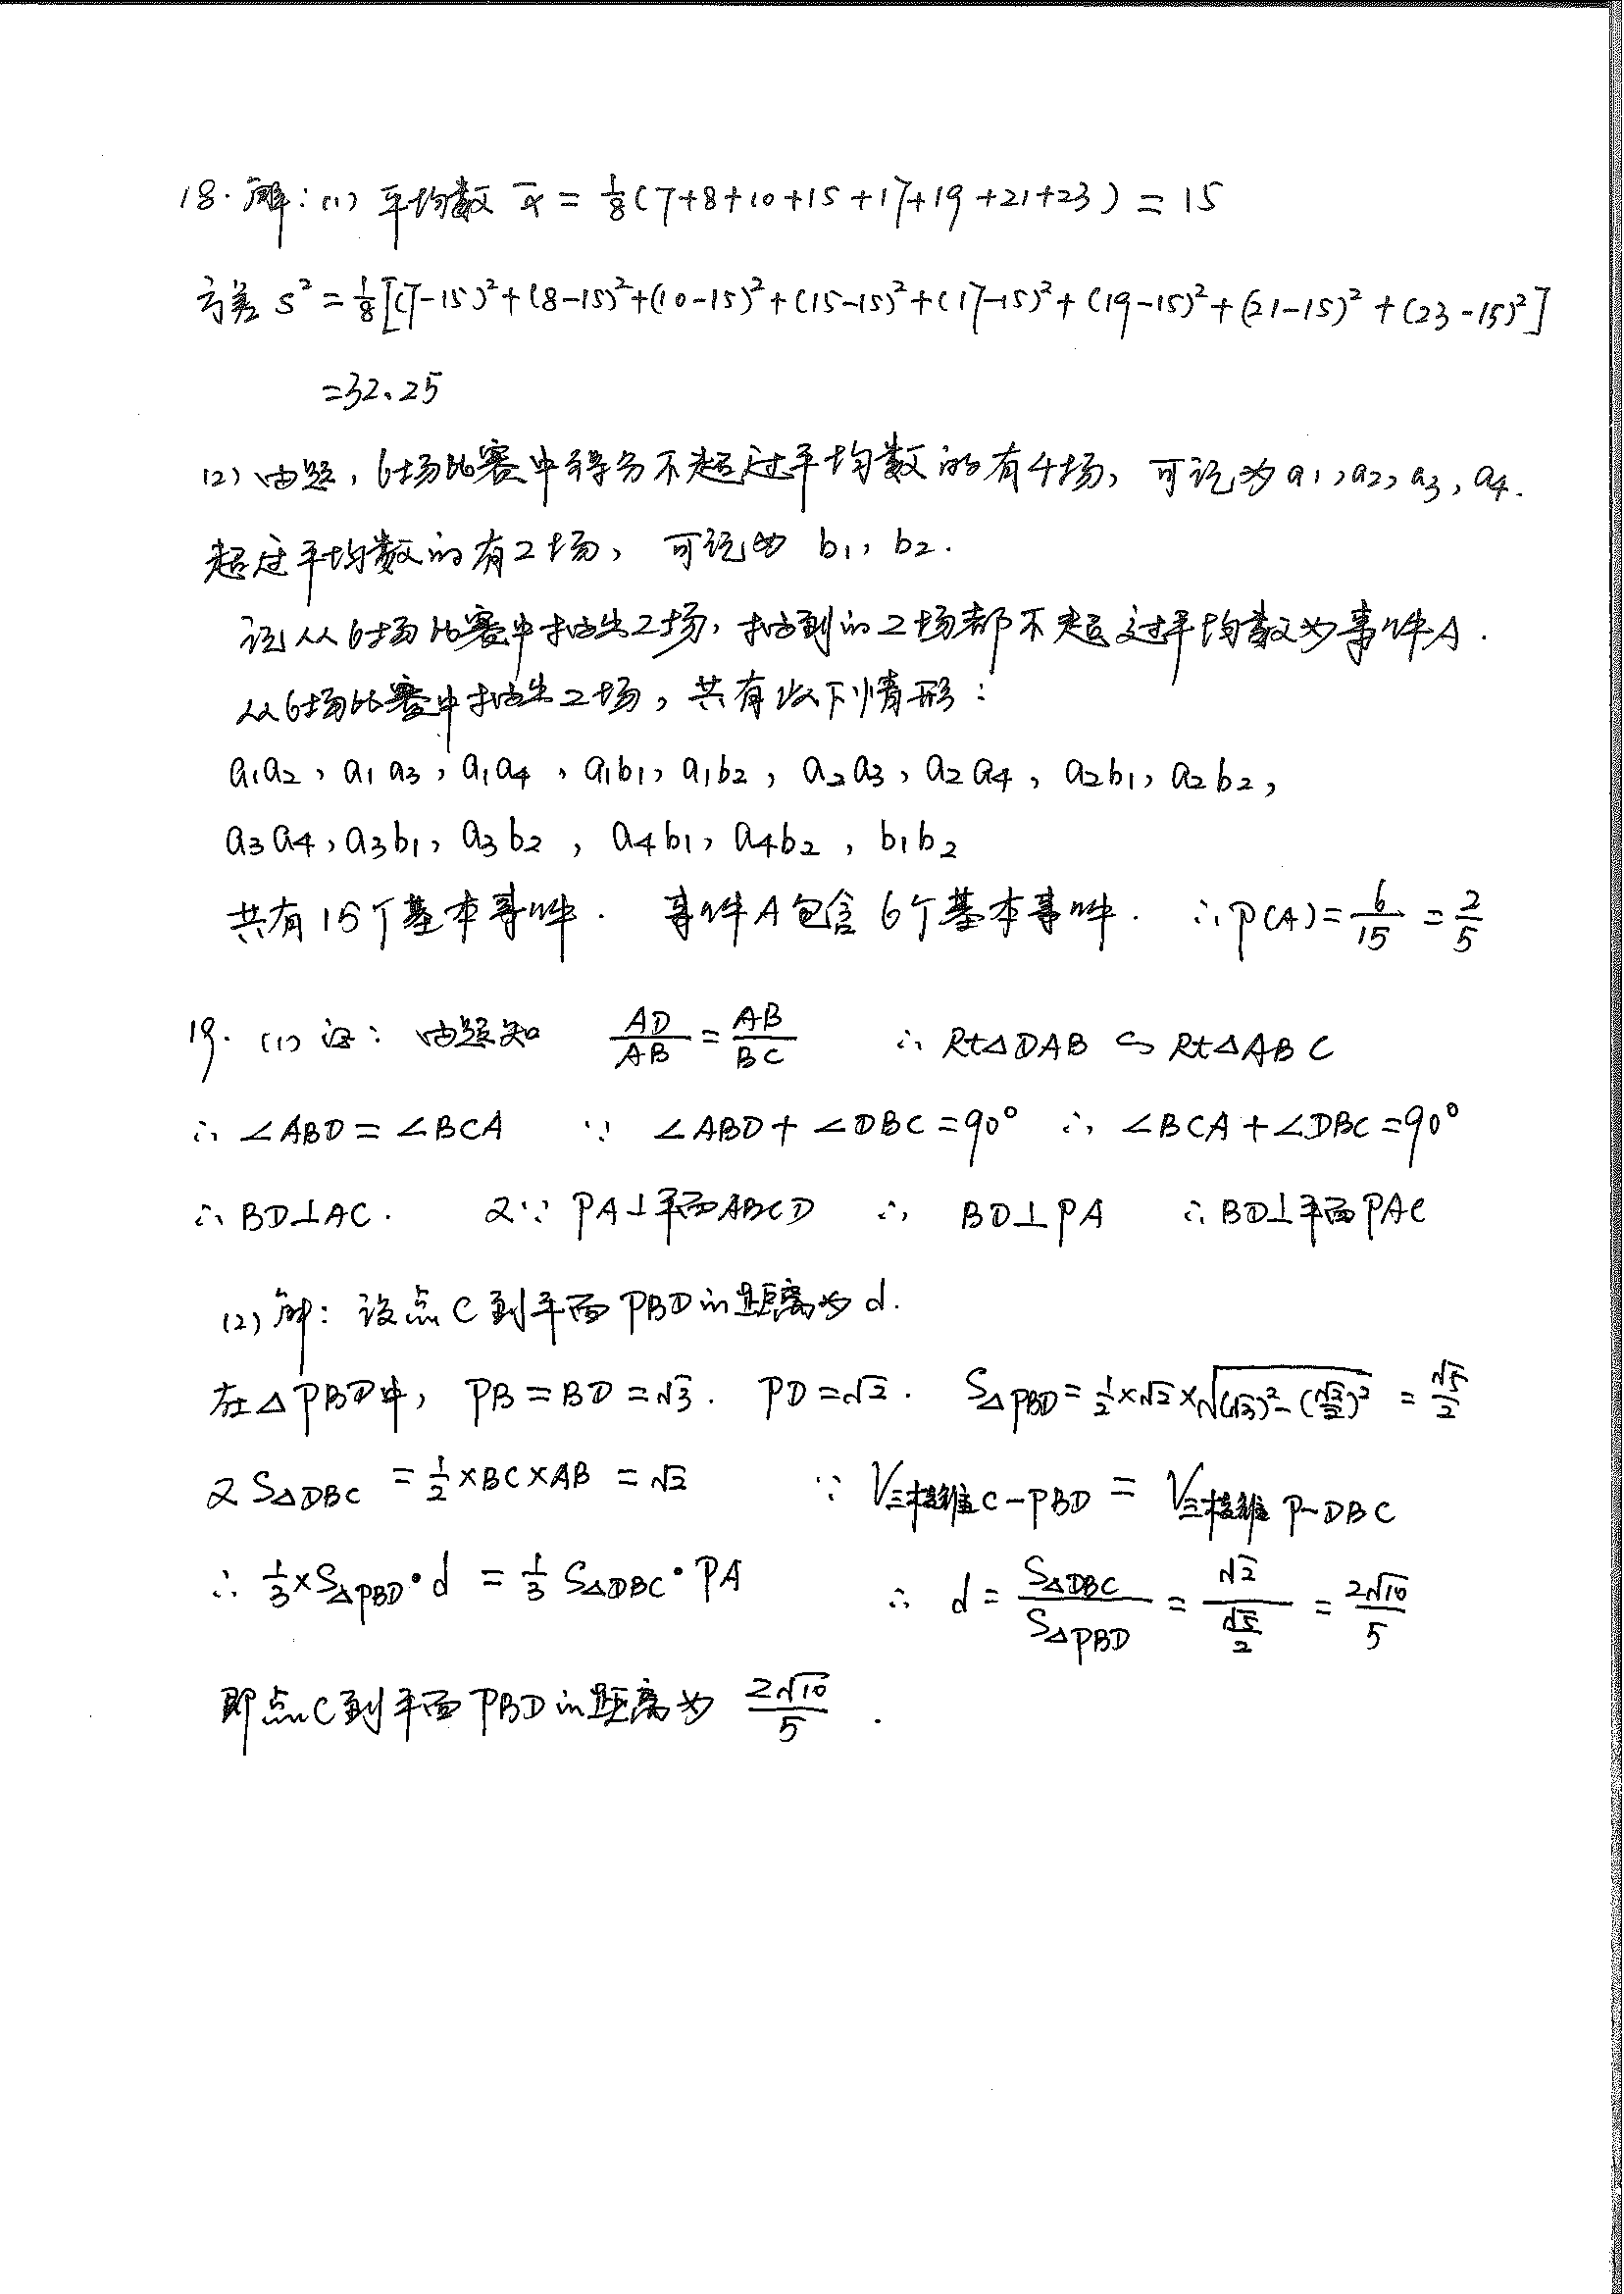 18. 解：(1) 平均数 x̄ = 1/8(7+8+10+15+17+19+21+23) = 15
方差 S² = 1/8[(7-15)²+(8-15)²+(10-15)²+(15-15)²+(17-15)²+(19-15)²+(21-15)²+(23-15)²]
=32.25
(2) 由题，6场比赛中得分不超过平均数的有4场，可记为 a₁,a₂,a₃,a₄.
超过平均数的有2场，可记为 b₁, b₂.
记从6场比赛中抽出2场，抽到的2场都不超过平均数为事件A.
从6场比赛中抽出2场，共有以下情形：
a₁a₂, a₁a₃, a₁a₄, a₁b₁, a₁b₂, a₂a₃, a₂a₄, a₂b₁, a₂b₂,
a₃a₄, a₃b₁, a₃b₂, a₄b₁, a₄b₂, b₁b₂
共有15个基本事件. 事件A包含6个基本事件. ∴P(A)=6/15=2/5
19. (1) 证：由题知 AD/AB=AB/BC ∴Rt△DAB∽Rt△ABC
∴∠ABD=∠BCA ∵∠ABD+∠DBC=90° ∴∠BCA+∠DBC=90°
∴BD⊥AC. 又∵PA⊥平面ABCD ∴BD⊥PA ∴BD⊥平面PAC
(2) 解：设点C到平面PBD的距离为d.
在△PBD中，PB=BD=√3. PD=√2. S△PBD=1/2×√2×√((√3)²-(√2/2)²)=√5/2
又S△DBC=1/2×BC×AB=√2 ∵V三棱锥C-PBD=V三棱锥P-DBC
∴1/3×S△PBD·d=1/3 S△DBC·PA ∴d=S△DBC/S△PBD=√2/(√5/2)=2√10/5
即点C到平面PBD的距离为 2√10/5.